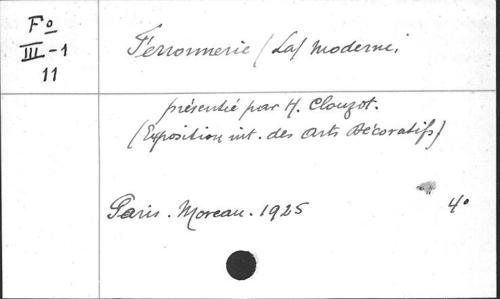 Fº
III-1
11
Ferronnerie (La) moderne,
présenté par H. Clouzot.
(Exposition int. des Arts Décoratifs)
Paris. Moreau. 1925
4º